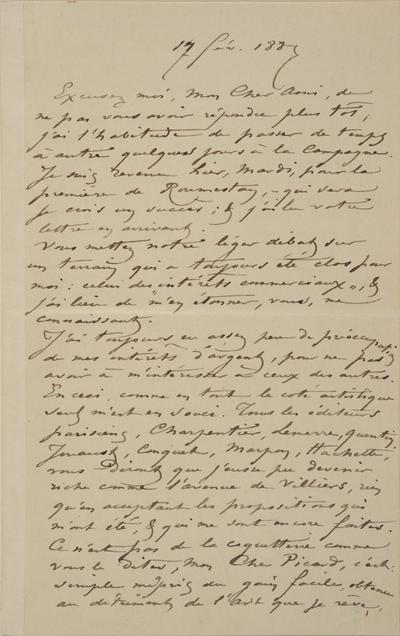 17 fév. 1887
Excusez moi, Mon Cher Ami, de
ne pas vous avoir répondu plus tôt;
j'ai l'habitude de passer de temps
à autre quelques jours à la Campagne.
Je suis revenu hier, Mardi, pour la
première de Roumestan, - qui sera
je crois un succès; & j'ai lu votre
lettre en arrivant.
Vous mettez notre léger débat sur
un terrain qui a toujours été clos pour
moi: celui des intérêts commerciaux, &
j'ai lieu de m'en étonner, vous, me
connaissant.
J'ai toujours eu assez peu de préoccupation
de mes intérêts d'argent, pour ne pas
avoir à m'intéresser à ceux des autres.
En ceci, comme en tout le coté artistique
seul m'est en souci. Tous les éditeurs
parisiens, Charpentier, Lemerre, Quantin,
Jouaust, Conquet, Marpon, Hachette,
vous diront que j'eusse pu devenir
riche comme l'avenue de Villiers, rien
qu'en acceptant les propositions qui
m'ont été, & qui me sont encore faites.
Ce n'est pas de la coquetterie comme
vous le dites, Mon Cher Picard, c'est
simple mépris du gain facile, obtenu
au détriment de l'Art que je rêve,